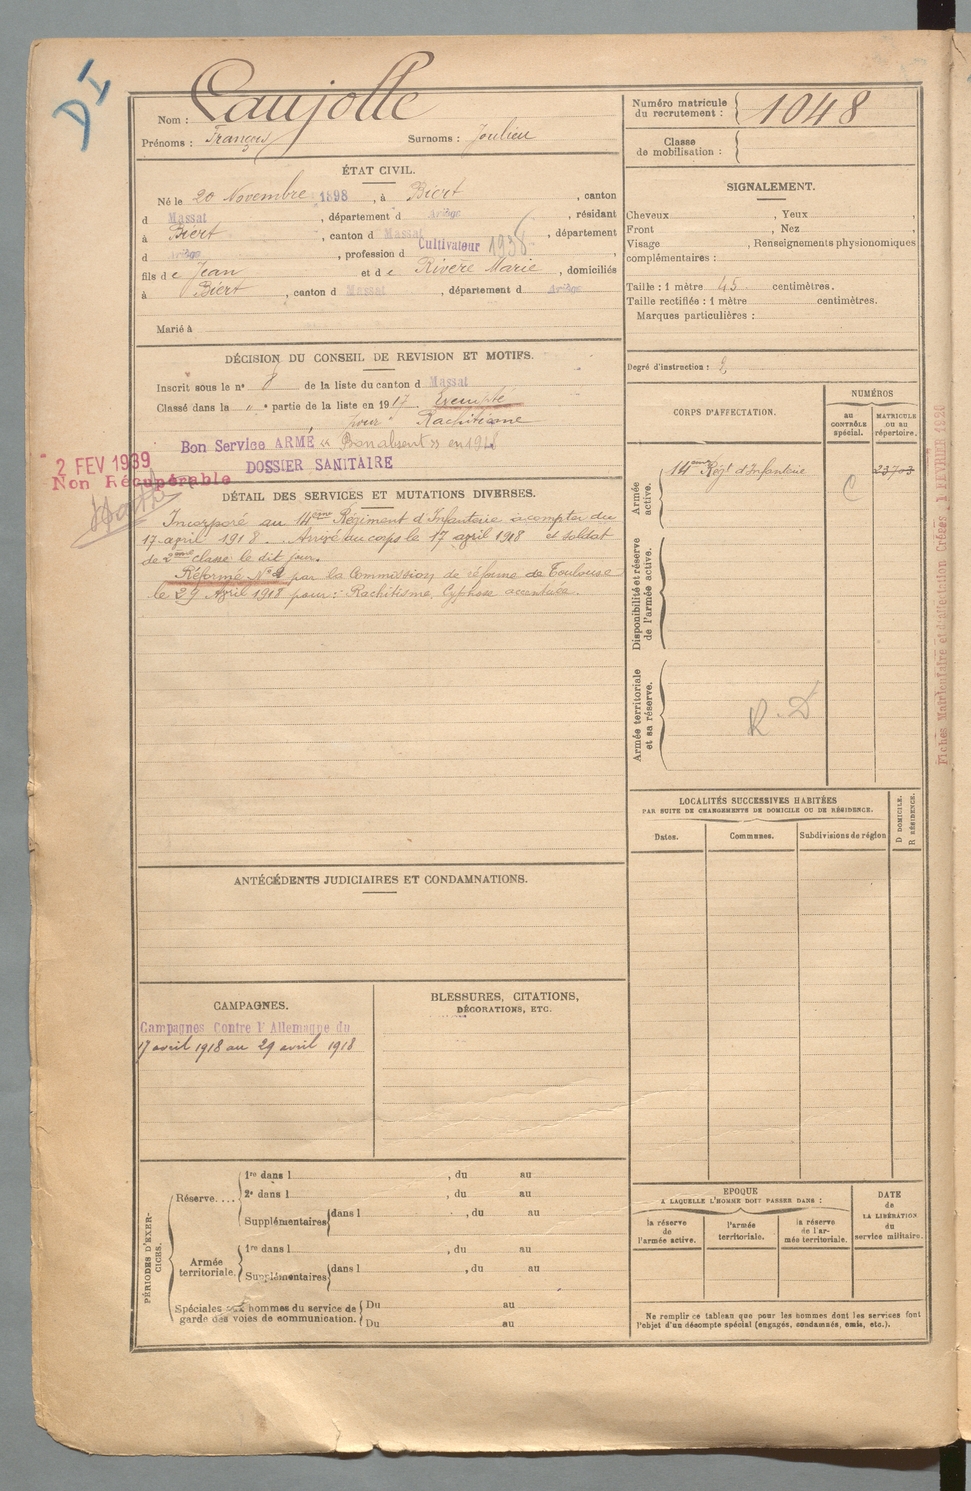 DI
Nom : Caujolle
Prénoms : François Surnoms : Joulieu
Numéro matricule du recrutement : 1048
Classe de mobilisation :
ÉTAT CIVIL.
Né le 20 Novembre 1898, à Biert, canton
d Massat, département d Ariège, résidant
à Biert, canton d Massat, département
d Ariège, profession d Cultivateur 1938,
fils d e Jean et d e Rivère Marie, domiciliés
à Biert, canton d Massat, département d Ariège
Marié à
SIGNALEMENT.
Cheveux , Yeux ,
Front , Nez ,
Visage , Renseignements physionomiques
complémentaires :
Taille : 1 mètre 45 centimètres.
Taille rectifiée : 1 mètre centimètres.
Marques particulières :
Degré d'instruction : 2
DÉCISION DU CONSEIL DE REVISION ET MOTIFS.
Inscrit sous le n° 8 de la liste du canton d Massat
Classé dans la " e partie de la liste en 1917. Exempté
pour " Rachitisme
Bon Service ARMÉ « Bon absent » en 1918
DOSSIER SANITAIRE
2 FEV 1939
Non Récupérable
DÉTAIL DES SERVICES ET MUTATIONS DIVERSES.
Incorporé au 14ème Régiment d'Infanterie à compter du
17 april 1918. Arrivé au corps le 17 april 1918 et soldat
de 2ème classe le dit jour.
Réformé N° 2 par la Commission de réforme de Toulouse
le 29 April 1918 pour : Rachitisme, Cyphose accentuée.
CORPS D'AFFECTATION.
NUMÉROS
AU CONTRÔLE spécial.
MATRICULE OU AU répertoire.
Armée active.
14ème Régt d'Infanterie 23703
C
Disponibilité et réserve de l'armée active.
Armée territoriale et sa réserve.
R. D
Fiches Matriculaire et d'affectation Créées, 1 FÉVRIER 1926
LOCALITÉS SUCCESSIVES HABITÉES
PAR SUITE DE CHANGEMENTS DE DOMICILE OU DE RÉSIDENCE.
Dates. Communes. Subdivisions de région
D DOMICILE.
R RÉSIDENCE.
ANTÉCÉDENTS JUDICIAIRES ET CONDAMNATIONS.
CAMPAGNES.
Campagnes Contre l'Allemagne du
17 avril 1918 au 29 avril 1918
BLESSURES, CITATIONS,
DÉCORATIONS, ETC.
PÉRIODES D'EXERCICES.
Réserve....
1re dans l , du au
2e dans l , du au
Supplémentaires dans l , du au
Armée territoriale.
1re dans l , du au
Supplémentaires dans l , du au
Spéciales aux hommes du service de garde des voies de communication.
Du au
Du au
EPOQUE
A LAQUELLE L'HOMME DOIT PASSER DANS :
la réserve de l'armée active.
l'armée territoriale.
la réserve de l'armée territoriale.
DATE de LA LIBÉRATION du service militaire.
Ne remplir ce tableau que pour les hommes dont les services font
l'objet d'un décompte spécial (engagés, condamnés, omis, etc.).